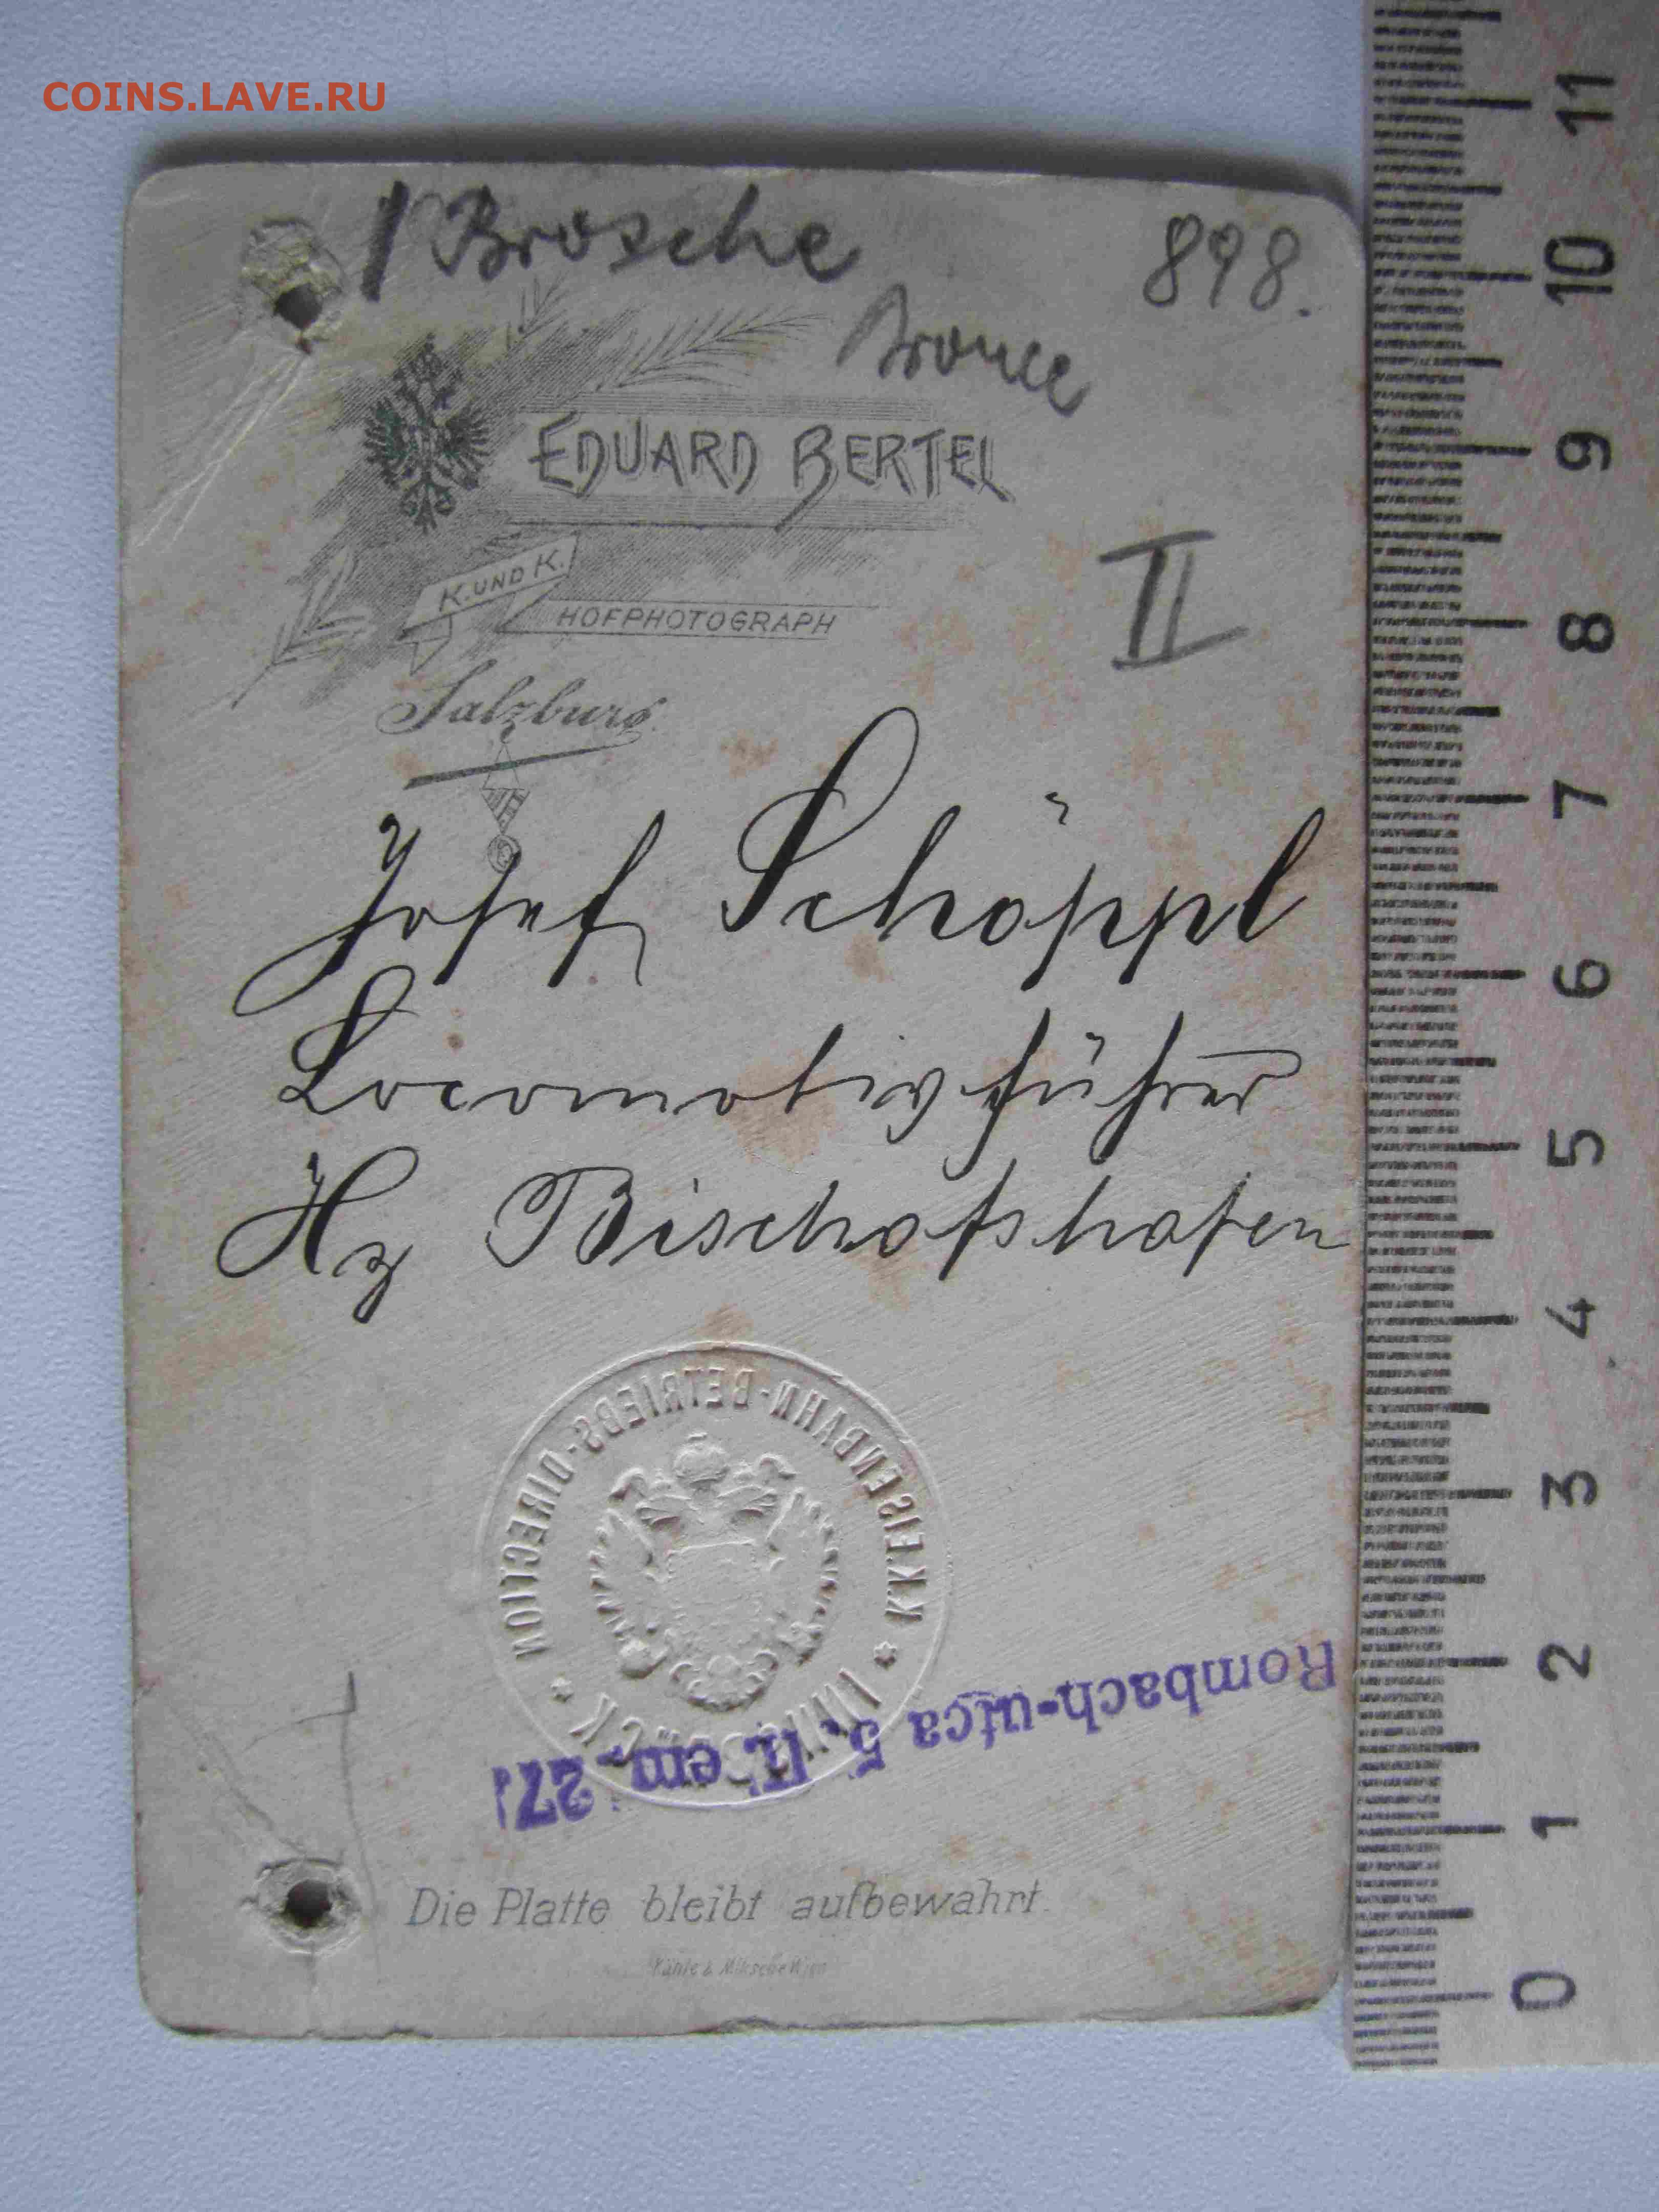 COINS.LAVE.RU
Brosche
898.
Bronce
EDUARD BERTEL
K. UND K.
HOFPHOTOGRAPH
II
Salzburg.
Josef Schöppl
Locomotivführer
Hz Bischofshofen
K.K. EISENBAHN-BETRIEBS-DIRECTION
* INNSBRUCK *
Rombach-utca 5. II. em. 27!
Die Platte bleibt aufbewahrt.
Wien
11
10
9
8
7
6
5
4
3
2
1
0